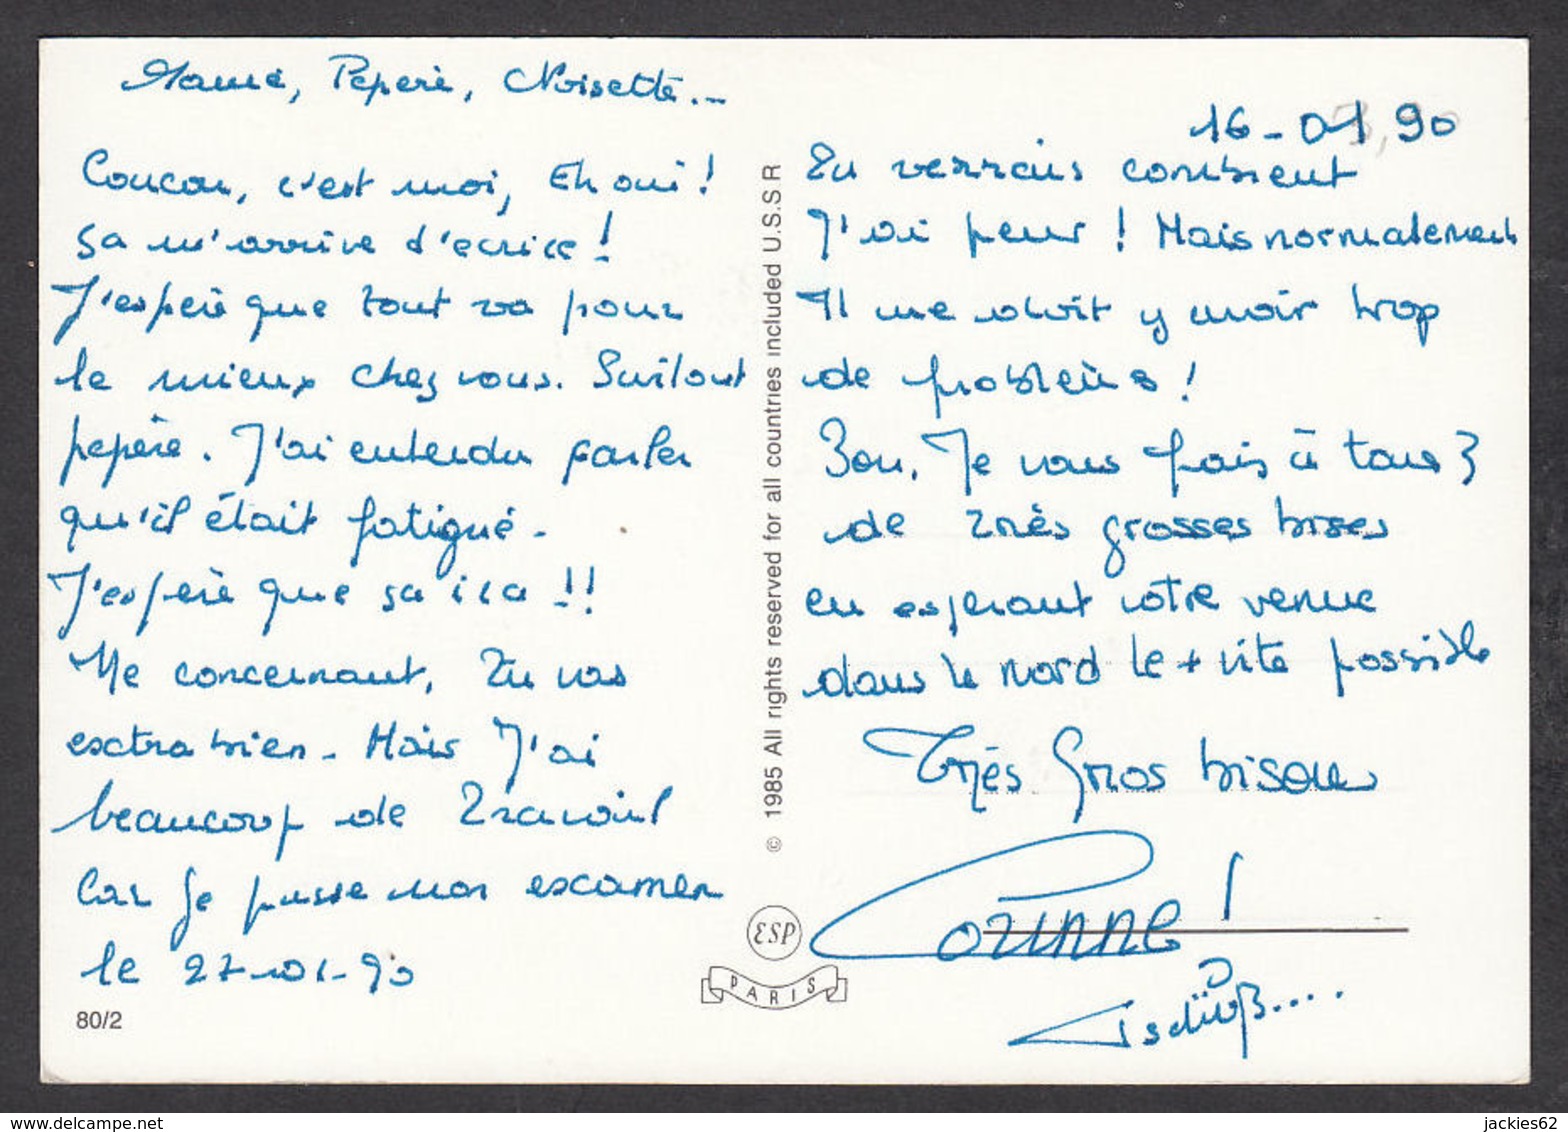 Mamie, Pépère, Noisette...
Coucou, c'est moi, Eh oui !
Sa m'arrive d'écrire !
J'espère que tout va pour
le mieux chez vous. Surtout
pépère. J'ai entendu parler
qu'il était fatigué.
J'espère que sa ira !!
Me concernant, Tu vas
extra bien. Mais J'ai
beaucoup de Travail
Car Je passe mon examen
le 27-01-90
80/2
© 1985 All rights reserved for all countries included U.S.S.R
ESP
PARIS
16-01.90
Tu verrais combient
J'ai peur ! Mais normalement
Il me doit y avoir trop
de problèms !
Bon, Je vous fais à tous 3
de très grosses bises
en esperant votre venue
dans le nord le + vite possible
Très Gros bisous
Corinne !
Tschüß....
delcampe.net
jackies62